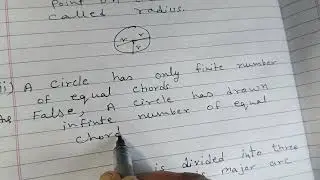 point on
called radius.
r r
r
ii) A circle has only finite number
of equal chords
False, A circle has drawn
infinte number of equal
chord
is divided into three
is major arc